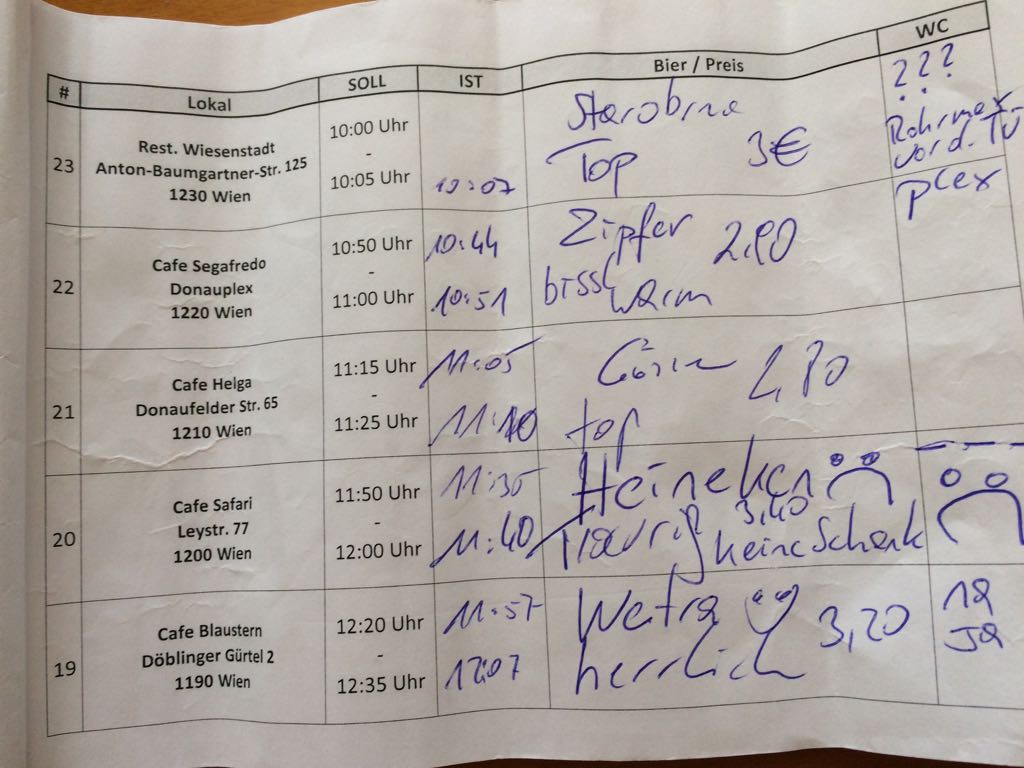 # Lokal SOLL IST Bier / Preis WC
23
Rest. Wiesenstadt
Anton-Baumgartner-Str. 125
1230 Wien
10:00 Uhr
-
10:05 Uhr
10:07
Starobrno
Top 3€
???
Rohrmax
vor d. Tü
22
Cafe Segafredo
Donauplex
1220 Wien
10:50 Uhr
-
11:00 Uhr
10:44
10:51
Zipfer 2,90
bissl warm
plex
21
Cafe Helga
Donaufelder Str. 65
1210 Wien
11:15 Uhr
-
11:25 Uhr
11:05
11:10
2,80
top
20
Cafe Safari
Leystr. 77
1200 Wien
11:50 Uhr
-
12:00 Uhr
11:35
11:40
Heineken
3,40
traurig keine Schank
19
Cafe Blaustern
Döblinger Gürtel 2
1190 Wien
12:20 Uhr
-
12:35 Uhr
11:57
12:07
Weitra 3,20
herrlich
1A
JA